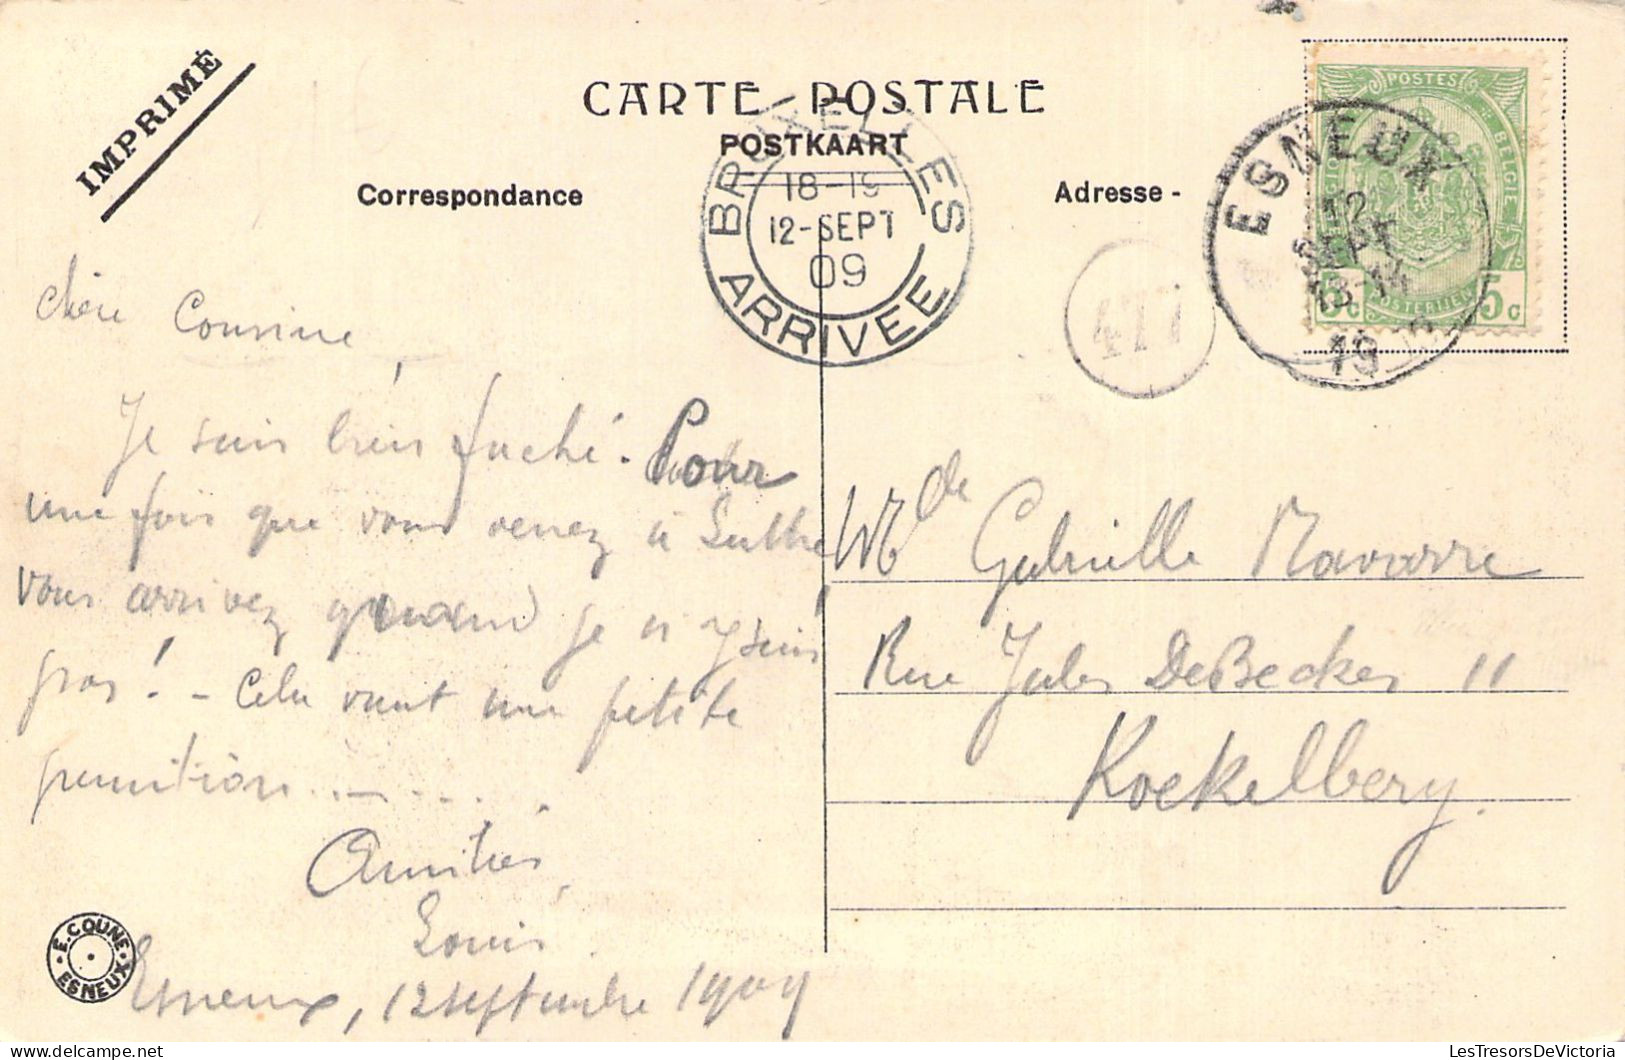 IMPRIMÉ
CARTE POSTALE
POSTKAART
Correspondance
Adresse -
BRUXELLES
18-19
12-SEPT
09
ARRIVEE
477
ESNEUX
12
SEPT
13-14
19
POSTES
BELGIQUE
BELGIË
POSTERIJEN
5c 5c
Chère Cousine,
Je suis bien faché. Pour
une fois que vous venez à
vous arrivez quand je n'y suis
pas! - Cela vaut une petite
punition ........
Amitiés,
Louis
Esneux, 12 septembre 1909
Mlle Gabrielle Navarre
Rue Jules DeBecker 11
Koekelberg.
E. COUNE
ESNEUX
LesTresorsDeVictoria
delcampe.net